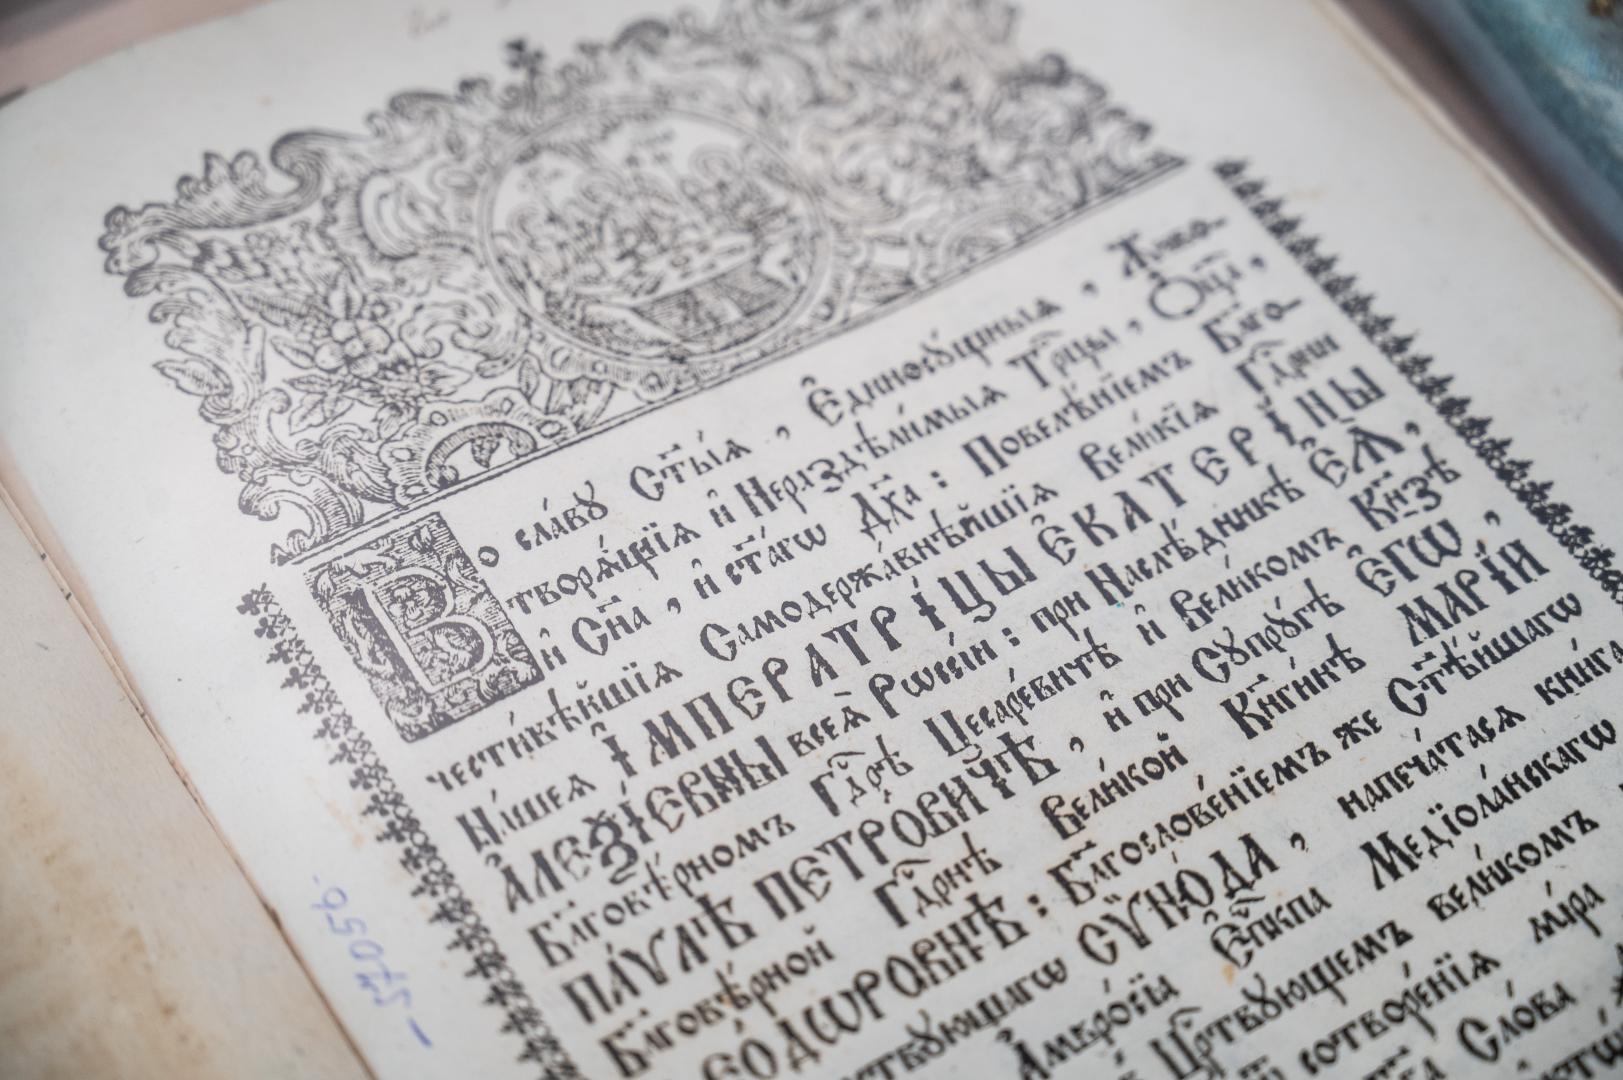 Во сла́вꙋ Ст҃ы́ѧ , Є҆диносꙋ́щныѧ , Живо-
творѧ́щїѧ и҆ Нераздѣли́мыѧ Трⷪ҇цы , Ѻ҆ц҃а̀ ,
и҆ Сн҃а , и҆ ст҃а́гѡ Дх҃а : Повелѣ́нїемъ Бл҃го-
чести́вѣйшїѧ Самодержа́внѣйшїѧ Вели́кїѧ Гдⷭ҇рни
На́шеѧ І҆МПЕРАТРІ́ЦЫ Є҆КАТЕРІ́НЫ
А҆ЛЕѮІ́ЕВНЫ всеѧ̀ Рѡссі́и : при Наслѣ́дникѣ Є҆Ѧ̀ ,
Бл҃говѣ́рномъ Гдⷭ҇рѣ Цесаре́вичѣ и҆ Вели́комъ Кн҃зѣ
ПА́ѴЛѢ ПЕТРО́ВИЧѢ , и҆ при Сꙋпрꙋ́гѣ Є҆ГѠ̀ ,
Бл҃говѣ́рной Гдⷭ҇рнѣ Вели́кой Кн҃ги́нѣ МАРІ́И
ЕО́ДѠРОВНѢ : Бл҃гослове́нїемъ же Ст҃ѣ́йшагѡ
ствꙋющагѡ СѴНО́ДА , напеча́тасѧ кни́га
А҆мвро́сїа Є҆пⷭ҇кпа Медїола́нскагѡ
Црⷭ҇твꙋющемъ вели́комъ
сотворе́нїѧ мі́ра
Сло́ва
- 57056.